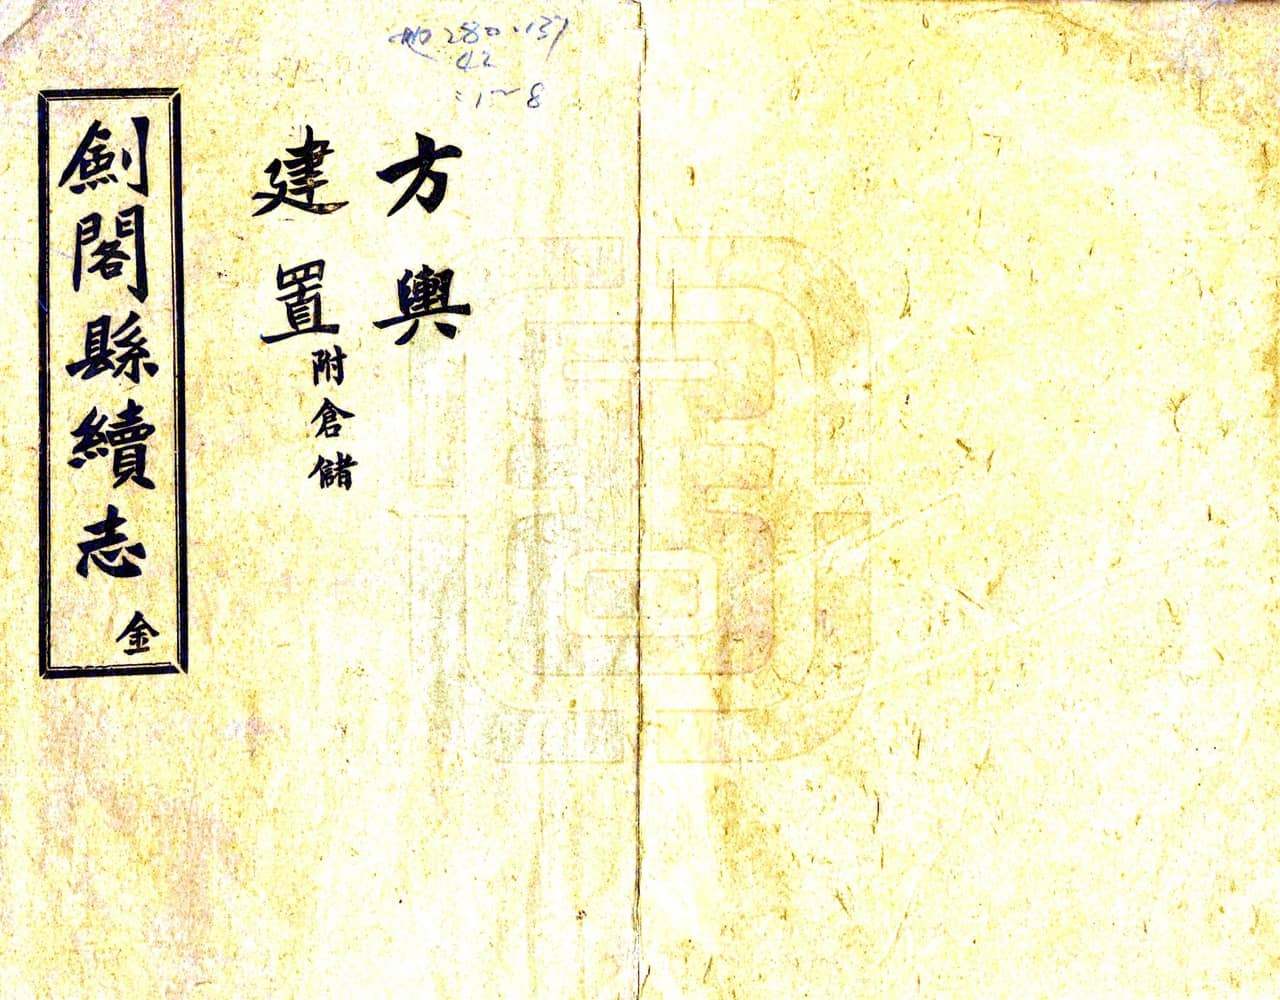 地280.137
42
:1~8
方輿
建置附倉儲
劍閣縣續志 金